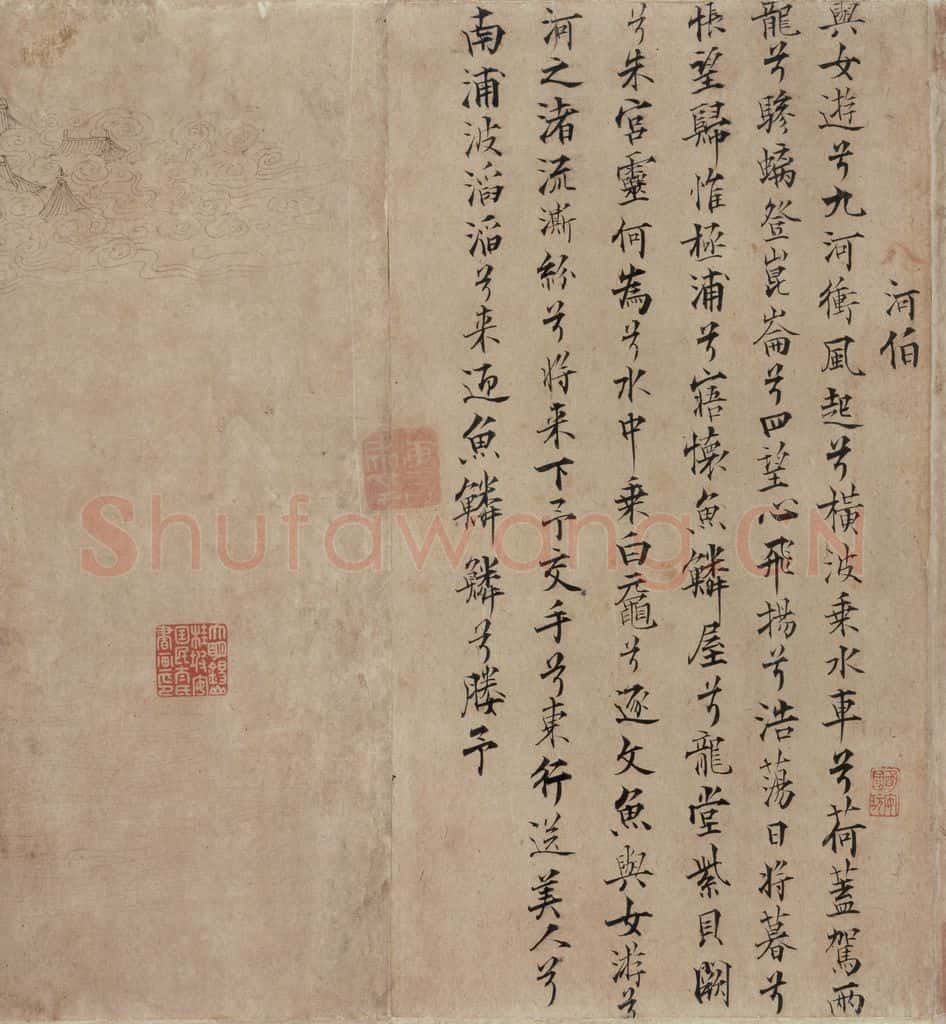 八
河伯
與女遊兮九河衝風起兮橫波乘水車兮荷蓋駕兩
龍兮驂螭登崑崙兮四望心飛揚兮浩蕩日将暮兮
悵望歸惟極浦兮寤懷魚鱗屋兮龍堂紫貝闕
兮朱宮靈何為兮水中乘白黿兮逐文魚與女游兮
河之渚流澌紛兮将来下予交手兮東行送美人兮
南浦波滔滔兮来迎魚鱗鱗兮媵予
大明錫山
桂坡安
國民太氏
書画印
Shufawang.CN